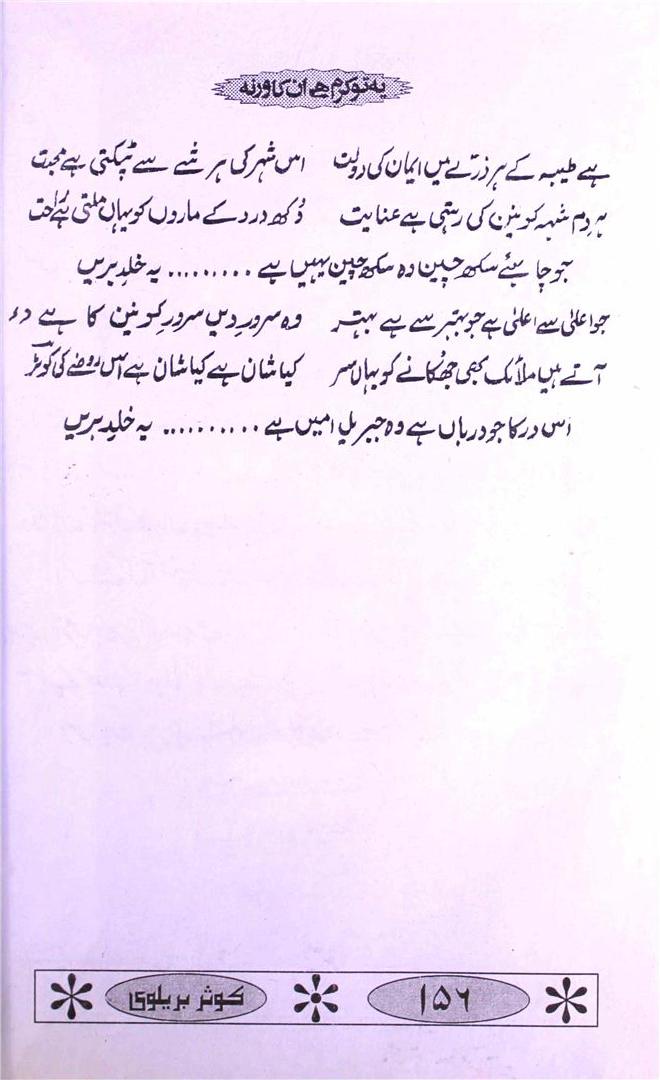 یہ تو کرم ہے ان کا ورنہ
ہے طیبہ کے ہر ذرّے میں ایمان کی دولت اس شہر کی ہر شے سے ٹپکتی ہے محبت
ہر دم شہہ کونین کی رہتی ہے عنایت دُکھ درد کے ماروں کو یہاں ملتی ہے راحت
جو چاہئے سکھ چین وہ سکھ چین یہیں ہے .......... یہ خلدِ بریں
جو اعلیٰ سے اعلیٰ ہے جو بہتر سے ہے بہتر وہ سرورِ دیں سرورِ کونین کا ہے در
آتے ہیں ملائک بھی جھکانے کو یہاں سر کیا شان ہے کیا شان ہے اس روضے کی کوثرؔ
اس در کا جو درباں ہے وہ جبریلِ امیں ہے .......... یہ خلدِ بریں
۱۵۶ کوثر بریلوی